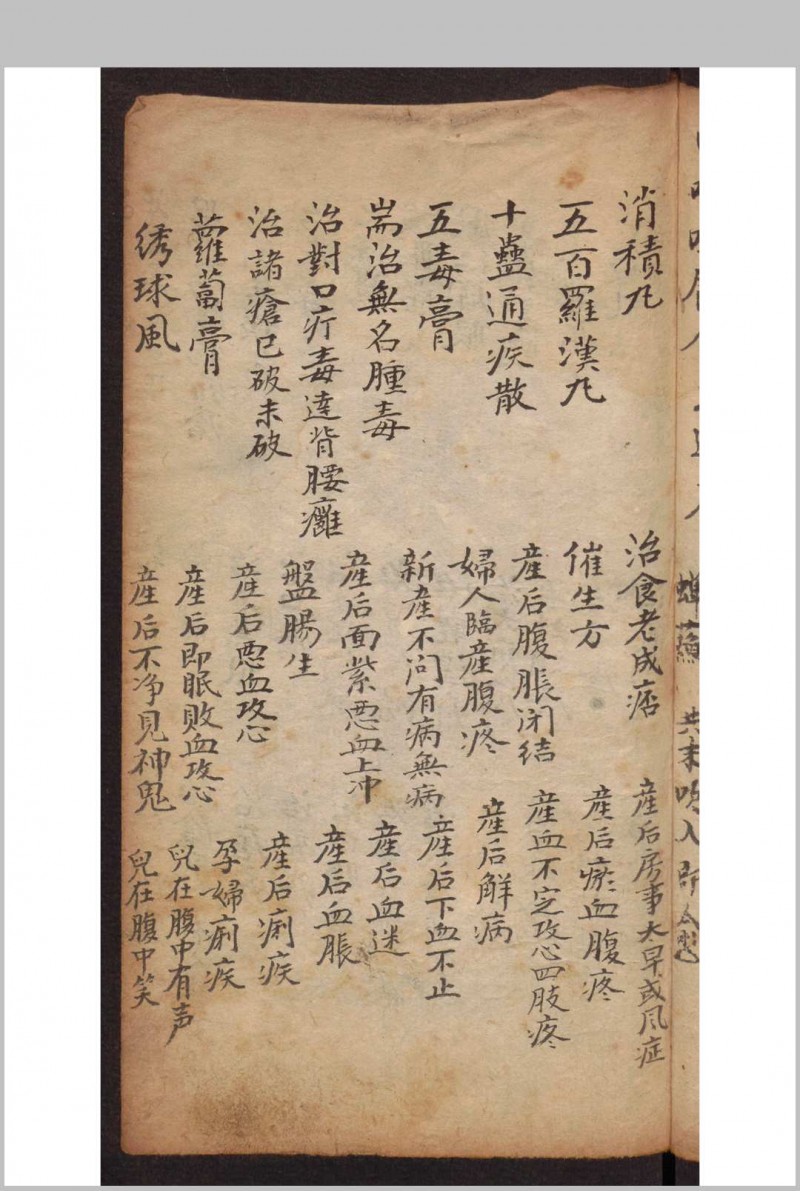 蟬蘇 共末吹入即
消積九
五百羅漢九
十蠱通疾散
五毒膏
耑治無名腫毒
治對口疔毒達背腰癰
治諸瘡已破未破
蘿蔔膏
绣球風
治食老成痞
催生方
産后腹脹闭结
婦人臨産腹疼
新産不问有病無病
産后面紫悪血上冲
盤腸生
産后悪血攻心
産后即眠败血攻心
産后不净見神鬼
産后房事太早或风症
産后瘀血腹疼
産血不定攻心四肢疼
産后觧病
産后下血不止
産后血迷
産后血脹
産后痢疾
孕婦痢疾
兒在腹中有声
兒在腹中笑